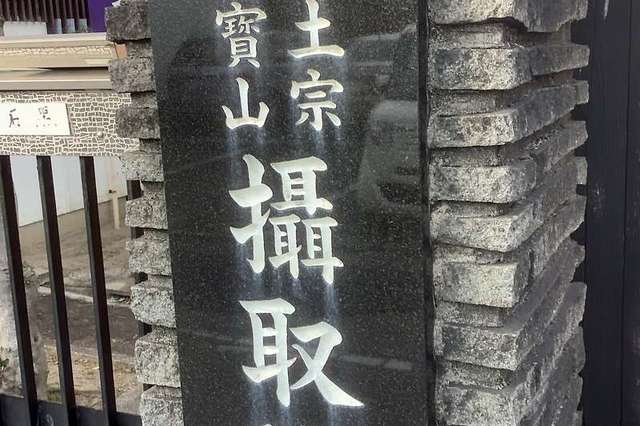 土宗
寳山
攝取